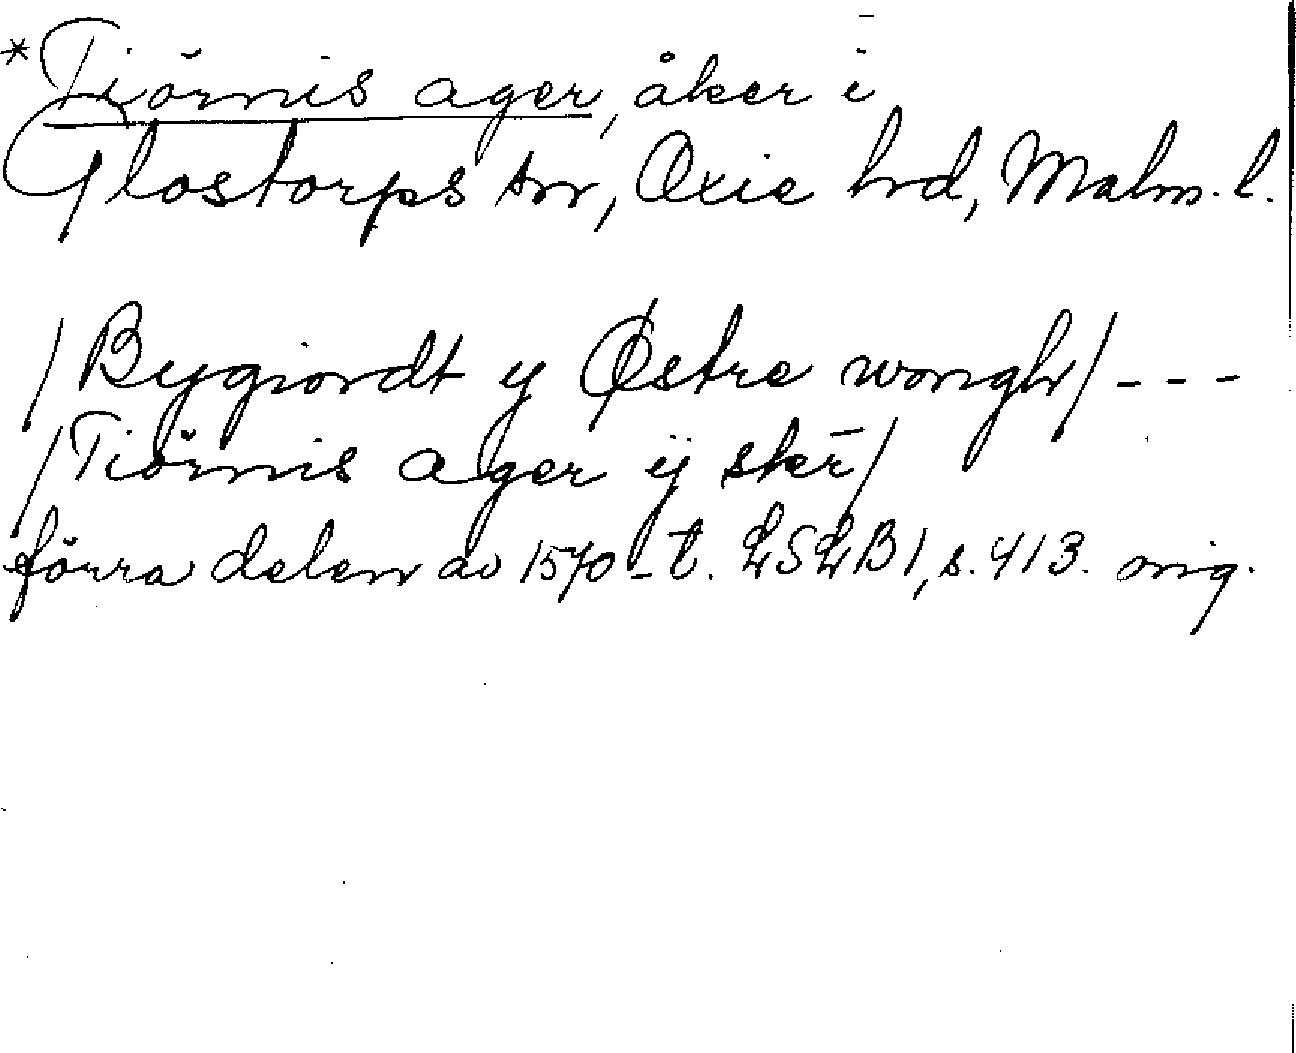 *Tiörnis ager, åker i
Glostorps sn, Oxie hd, Malm. l.
/Bygiordt y Østre wongh/ - - -
/Tiörnis ager ÿ skr̄/
förra delen av 1570-t. LSLB1, s. 413. orig.